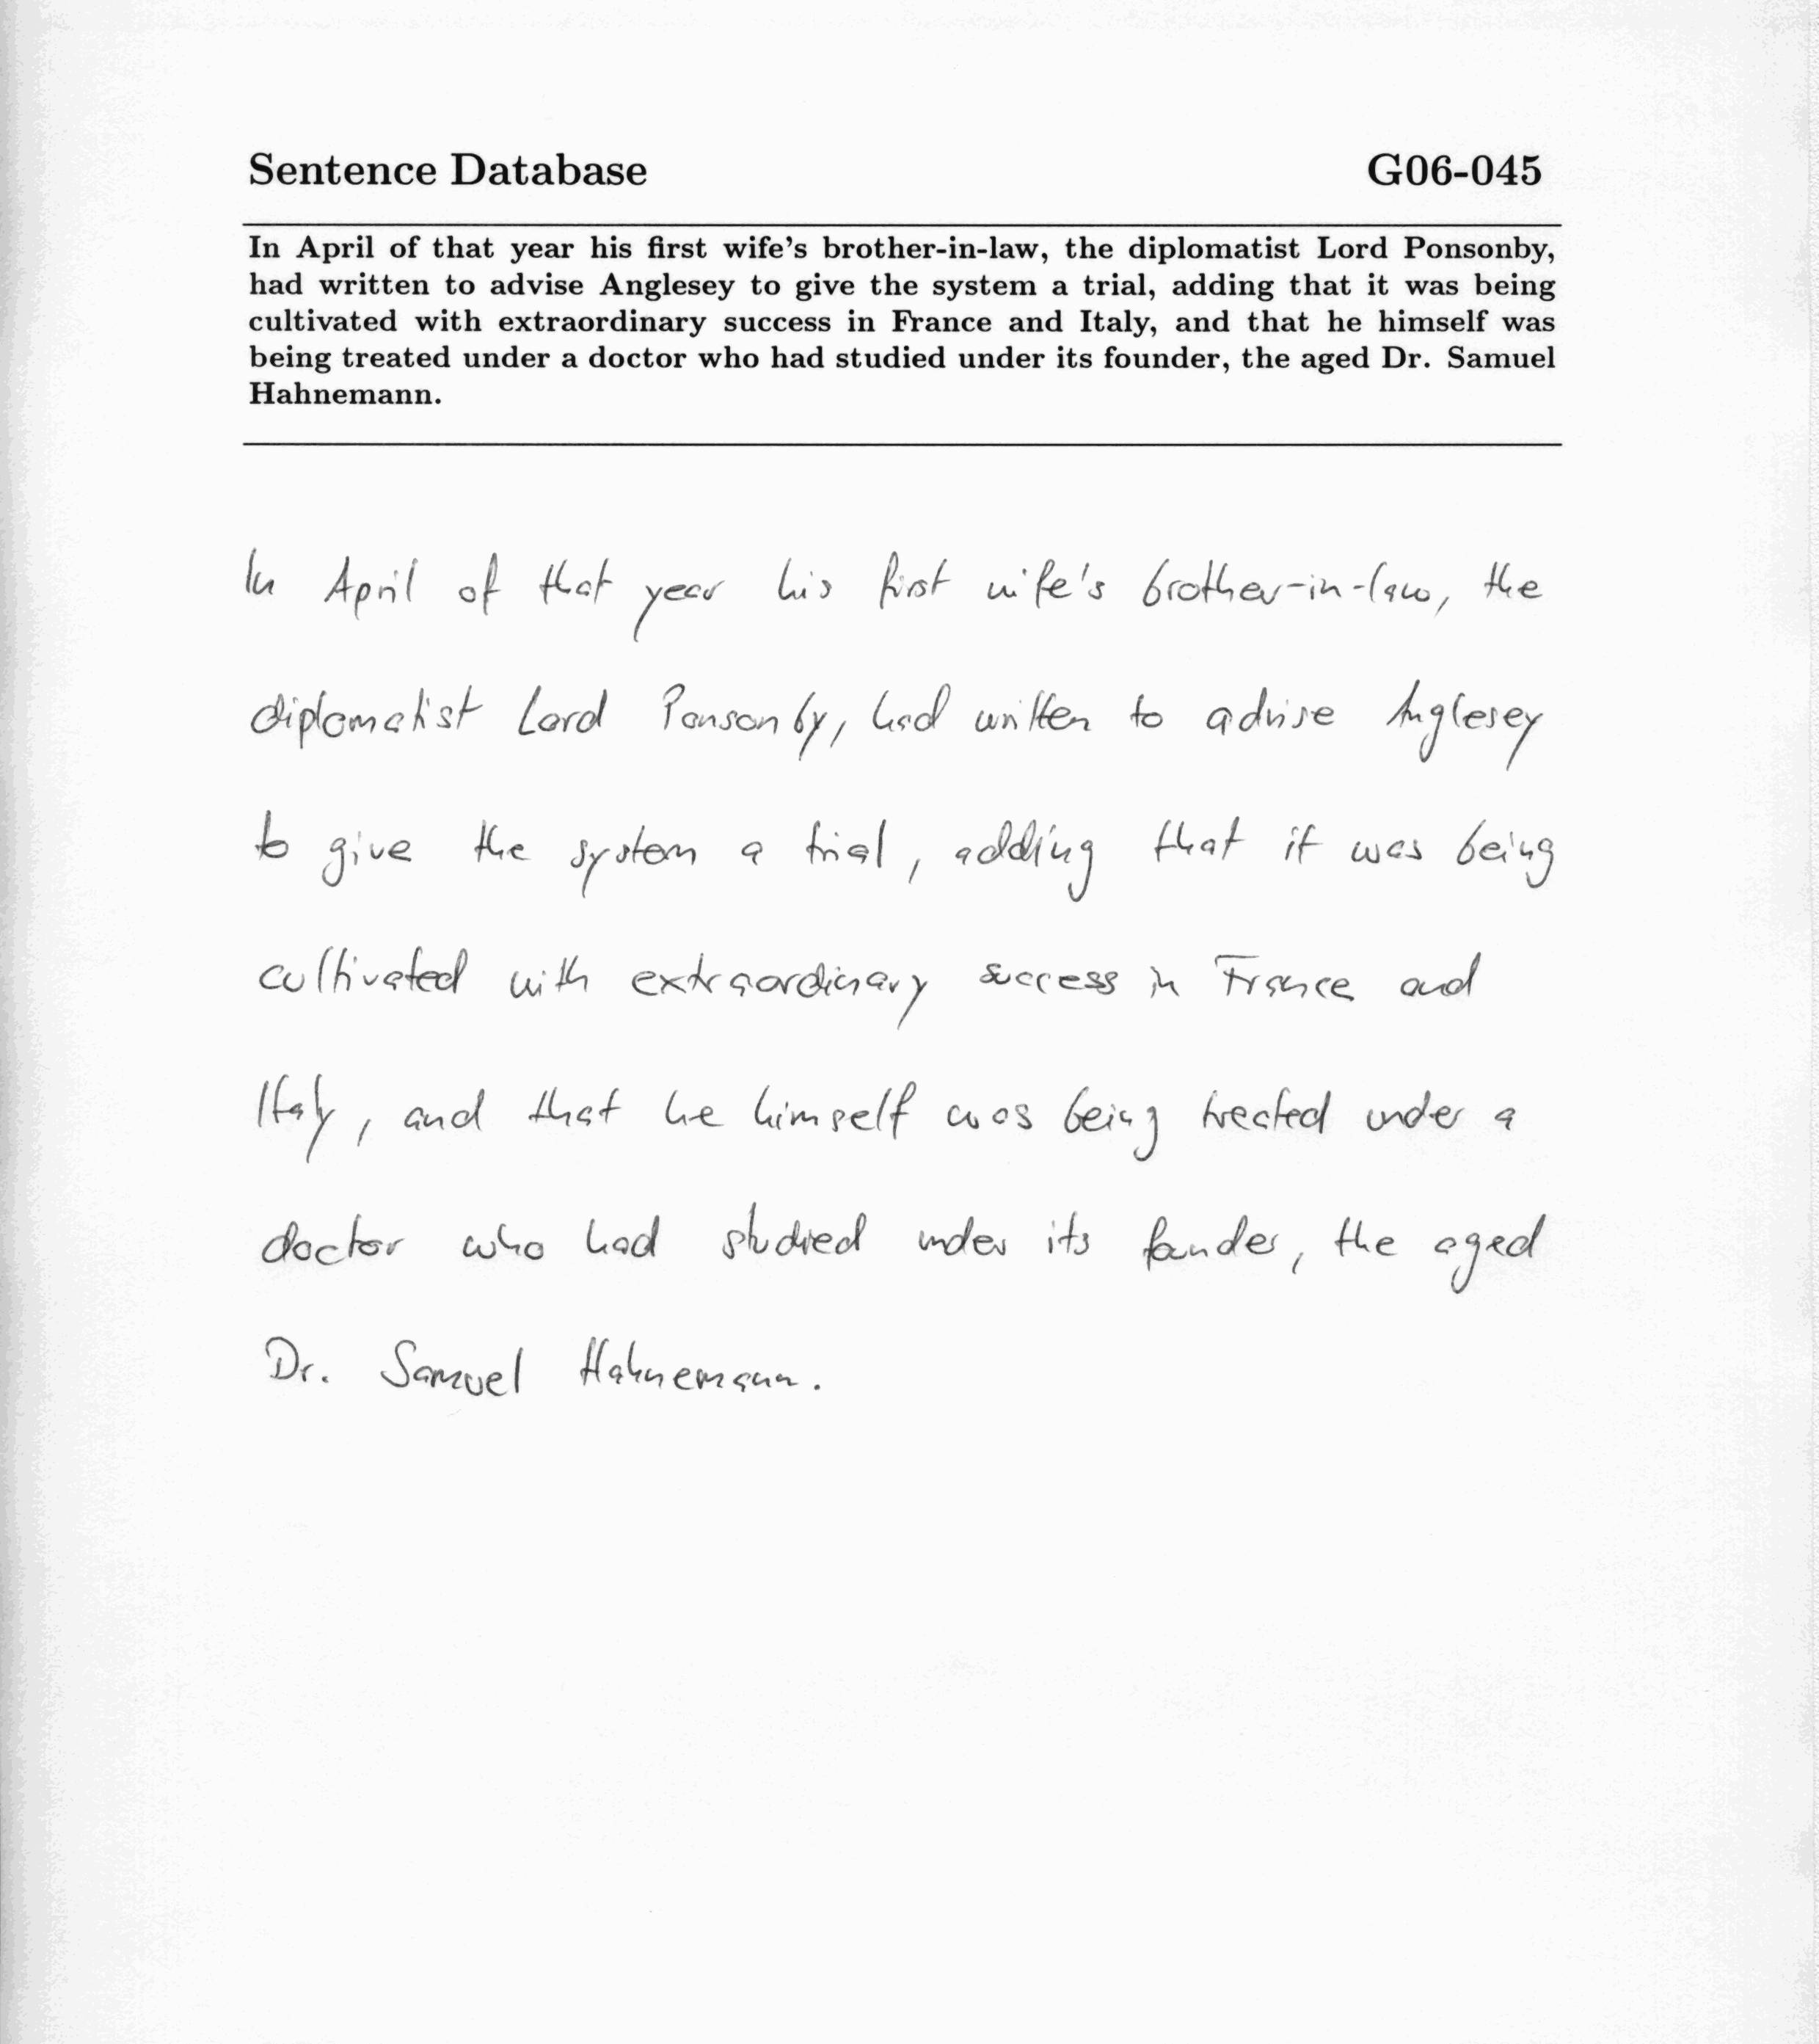 Sentence Database G06-045
In April of that year his first wife's brother-in-law, the diplomatist Lord Ponsonby,
had written to advise Anglesey to give the system a trial, adding that it was being
cultivated with extraordinary success in France and Italy, and that he himself was
being treated under a doctor who had studied under its founder, the aged Dr. Samuel
Hahnemann.
In April of that year his first wife's brother-in-law, the
diplomatist Lord Ponsonby, had written to advise Anglesey
to give the system a trial, adding that it was being
cultivated with extraordinary success in France and
Italy, and that he himself was being treated under a
doctor who had studied under its founder, the aged
Dr. Samuel Hahnemann.